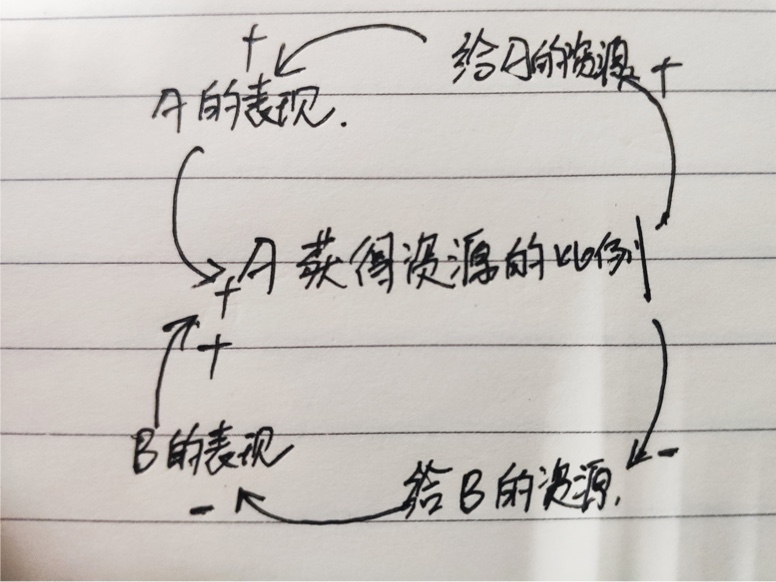 + 给A的资源 +
A的表现.
A获得资源的比例
+
+
B的表现 -
- 给B的资源.